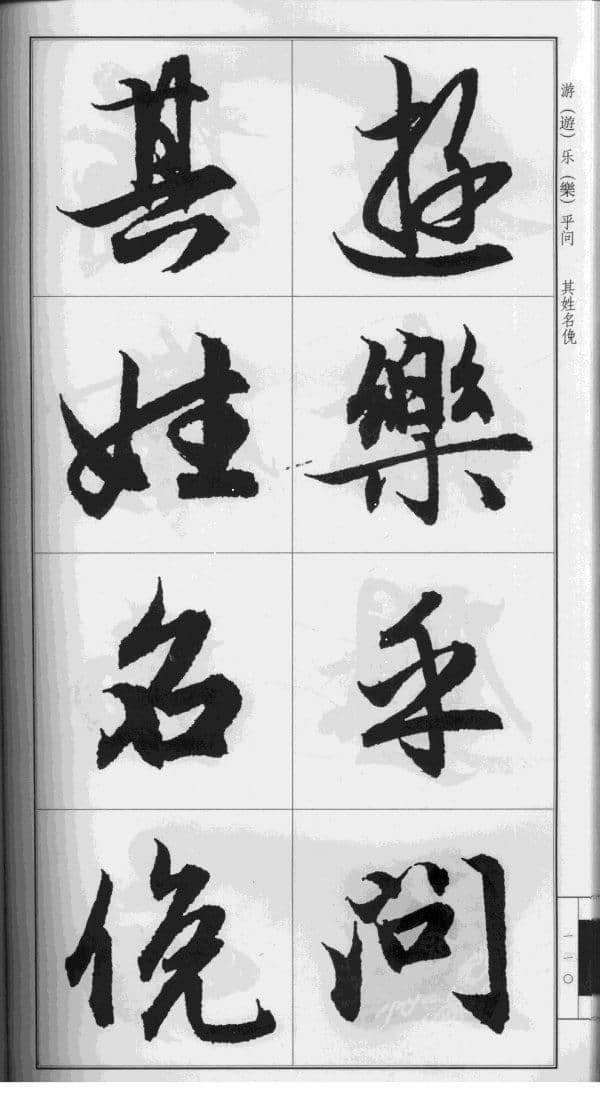 遊樂乎問
其姓名俛
游（遊）乐（樂）乎问 其姓名俛
一一〇